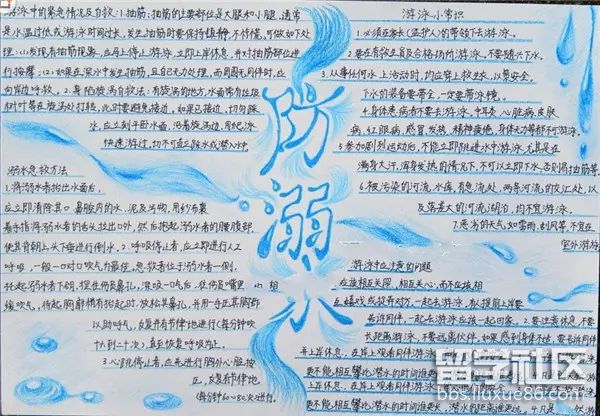 游泳中的紧急情况及自救:1.抽筋:抽筋的主要部位是大腿和小腿,通常
是水温过低或游泳时间过长,发生抽筋时要保持镇静,不惊慌,可做如下处
理:(1)发现有抽筋现象,应马上停止游泳,立即上岸休息,并对抽筋部位进
行按摩;(2)如果在深水中发生抽筋,且自己无力处理,而周围无同伴时,应
向岸边呼救。2.身陷漩涡自救法:有漩涡的地方,水面常有垃圾
树叶等在漩涡处打转,此时要避免接近,如果已接近,切勿踩
水,应立刻平卧水面,沿着漩涡边,用爬泳
快速游过,切不可直跳水或潜入水中
溺水急救方法
1.将溺水者抬出水面后,
应立即清除其口鼻腔内的水、泥及污物,用纱布裹
着手指将溺水者的舌头拉出口外,然后抱起溺水者的腰腹部,
使其背朝上头下垂进行倒水。2.呼吸停止者,应立即进行人工
呼吸,一般一口对口吹气为最佳,急救者位于溺水者一侧,
托起溺水者下颌,捏住伤员鼻孔,深吸一口气后,往伤员嘴里
缓缓吹气,待起胸廓稍有抬起时,放松其鼻孔,并用一手压其胸部
以助呼气,反复并有节律地进行(每分钟吹
16到二十次),直至恢复呼吸为止。
3.心跳停止者,应先进行胸外心脏按
压,反复有节律地
(每分钟60-80次)进行。
防溺水
游泳小常识
1.必须在家长(监护人)的带领下去游泳。
2.要在有救生员合格场所游泳,不要随兴下水。
3.从事任何水上活动时,均应穿上救生衣,以策安全。
下水的装备要带全,一定要带泳镜。
4.身体患病者不要去游泳。中耳炎、心脏病、皮肤
病、红眼病、感冒发热、精神疲倦、身体无力等都不游泳。
5.参加剧烈运动后,不能立即跳进水中游泳,尤其是在
满身大汗,浑身发热的情况下,不可以立即下水,否则将抽筋等
6.被污染的河流、水库、有急流处、两条河流的交汇处,以
及落差大的河流湖泊,均不宜游泳。
7.恶劣的天气如雷雨、刮风等,不宜在
室外游泳
游泳中应注意的问题
在互相关照,相互关心,而不应该相
互嬉戏或捉弄对方,一起去游泳,
和同伴,一起去游泳应该一起回家。2.要注意休息,不要
长时间游泳,不要远离伙伴。如果感到身体不适,要告诉同伴
并上岸休息,在岸上观看同伴游泳
更不能,相互攀比潜水的时间谁更长,潜水的距离谁更远
留学社区
bbs.liuxue86.com